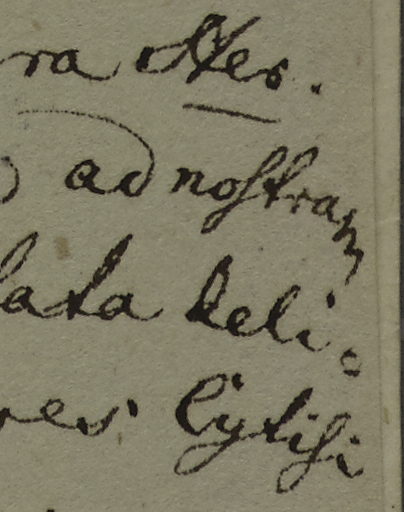 ra Her.
ad nostram
lata deli-
res Cytisi